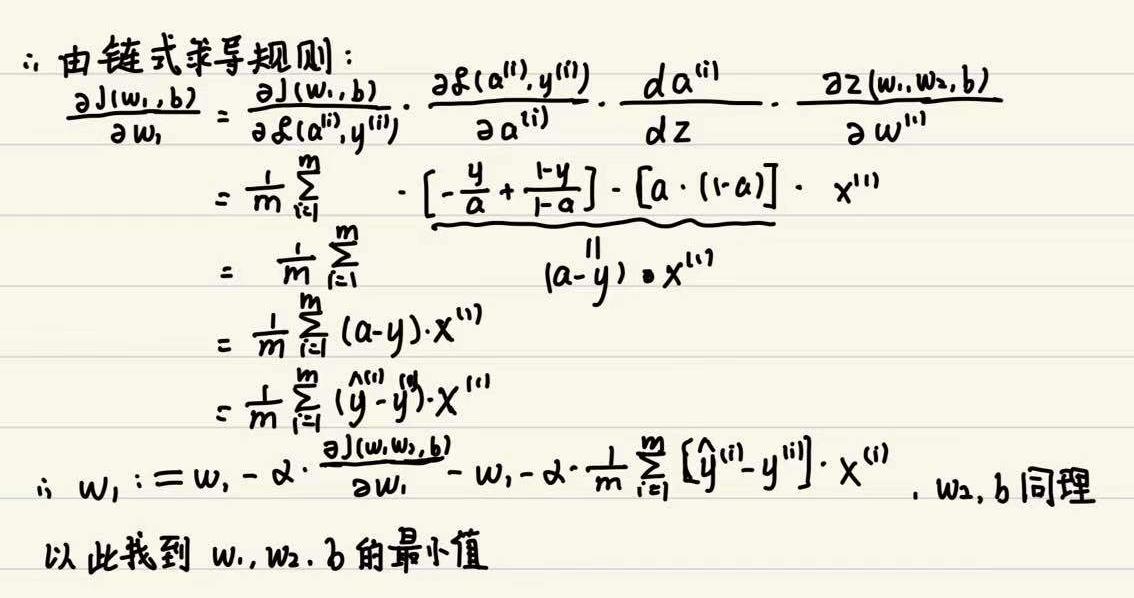 ∴ 由链式求导规则:
∂J(w₁,b)/∂w₁ = ∂J(w₁,b)/∂ℒ(a⁽ⁱ⁾,y⁽ⁱ⁾) · ∂ℒ(a⁽ⁱ⁾,y⁽ⁱ⁾)/∂a⁽ⁱ⁾ · da⁽ⁱ⁾/dz · ∂z(w₁,w₂,b)/∂w⁽¹⁾
= 1/m Σᵢ₌₁ᵐ · [-y/a + (1-y)/(1-a)] · [a·(1-a)] · x⁽¹⁾
= 1/m Σᵢ₌₁ᵐ (a-y) · x⁽¹⁾
= 1/m Σᵢ₌₁ᵐ (a-y)·x⁽¹⁾
= 1/m Σᵢ₌₁ᵐ (ŷ⁽ⁱ⁾-y⁽ⁱ⁾)·x⁽¹⁾
∴ w₁ := w₁ - α · ∂J(w₁,w₂,b)/∂w₁ - w₁ - α · 1/m Σᵢ₌₁ᵐ [ŷ⁽ⁱ⁾-y⁽ⁱ⁾] · x⁽ⁱ⁾ . w₂, b 同理
以此找到 w₁, w₂. b 的最小值